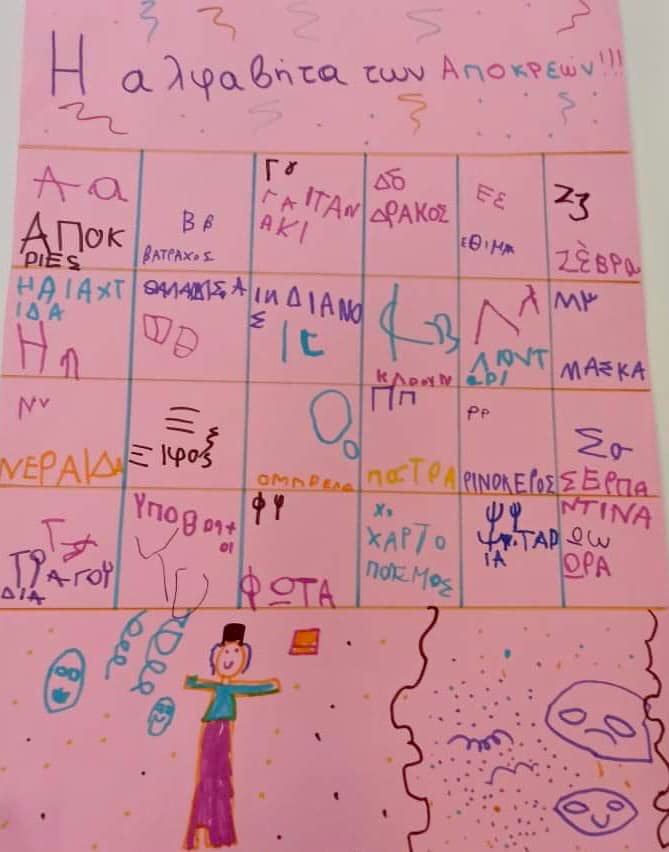 Η αλφαβήτα των Αποκρεών!!!
Α-α
ΑΠΟΚ
ΡΙΕΣ
Β β
ΒΑΤΡΑΧΟΣ
Γ γ
ΓΑΙΤΑΝ
ΑΚΙ
Δδ
ΔΡΑΚΟΣ
Εε
ΕΘΙΜΑ
Ζζ
ΖΈΒΡα
ΗΛΙΑΧΤ
ΙΔΑ
Η η
ΙΝΔΙΑΝΟ
Σ
Ι ι
Κ
ΚΛΟΟΥΝ
Λ λ
ΛΙΟΝΤ
ΑΡΙ
Μμ
ΜΑΣΚΑ
Νν
ΝΕΡΑΙΔΑ
Ξ ξ
Ξιφος
Ο ο
ΟΜΠΡΕΛΑ
Ππ
ΡΡ
ΡΙΝΟΚΕΡΟΣ
Σσ
ΣΕΡΠΑ
ΝΤΙΝΑ
Τ τ
ΤΡΑΓΟΥ
ΔΙΑ
Υυ
Φ φ
ΦΩΤΑ
Χχ
ΧΑΡΤΟ
ΠΟΛΕΜΟΣ
Ψ ψ
ΙΑ
Ωω
ΩΡΑ